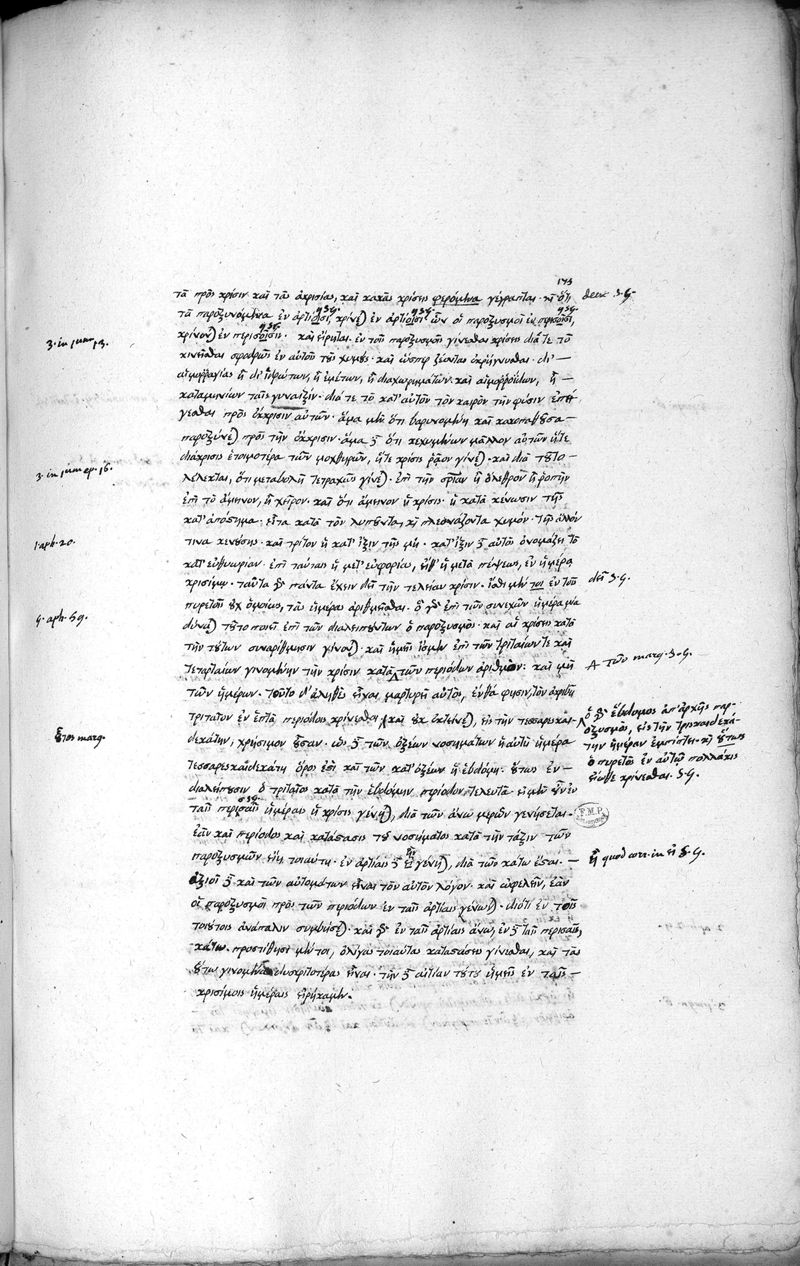 173
τὰ πρὸς κρίσιν καὶ τὰς ἀκρισίας, καὶ κακὰς κρίσεις φερόμενα γέγραπται
τὰ παροξυνόμενα ἐν ἀρτίοισι, κρίνε) ἐν ἀρτίοισι· ὧν οἱ παροξυσμοὶ ἐν περισσοῖσι,
κρίνον) ἐν περισσοῖσι· καὶ εἴρηται· ἐν τοῖς παροξυσμοῖς γίνεσθαι κρίσεις διά τε τὸ
3. in
κινεῖσθαι σφοδρῶς ἐν αὐτοῖς τοὺς χυμοὺς· καὶ ὥσπερ ζέοντας ἐκρήγνυσθαι· δι᾽
αἱμορραγίας ἢ δι᾽ ἱδρώτων, ἢ ἐμέτων, ἢ διαχωρημάτων καὶ αἱμορροΐδων, ἢ
καταμηνίων ταῖς γυναιξίν· διά τε τὸ κατ᾽ αὐτὸν τὸν καιρὸν τὴν φύσιν ἐπεί
γεσθαι πρὸς ἔκκρισιν αὐτῶν· ἅμα μὲν ὅτι βαρυνομένη καὶ κακοπαθοῦσα
παροξύνε) πρὸς τὴν ἔκκρισιν· ἅμα δὲ ὅτι κεχυμένων μᾶλλον αὐτῶν ἥτε
διάκρισις ἑτοιμοτέρα τῶν μοχθηρῶν, ἥτε κρίσις ῥᾷον γίνε)· καὶ διὰ τοῦτο
3. in
λέλεκται, ὅτι μεταβολὴ τετραχῶς γίνε)· ἐπὶ τὴν ἢ ὄλεθρον ἢ ῥοπὴν
ἐπὶ τὸ ἄμεινον, ἢ χεῖρον· καὶ ὅτι ἄμεινον ἡ κρίσις· ἡ κατὰ κένωσιν τῆς
κατ᾽ ἀπόστημα· εἶτα κατὰ τὸν λυποῦντα, καὶ πλεονάζοντα χυμόν· τῆς ἄλλόν
τινα κενούσης· καὶ τρίτον ἡ κατ᾽ ἴξιν τῆς μὴ· κατ᾽ ἴξιν δὲ αὐτὸς ὀνομάζει τὸ
1. aph. 20.
κατ᾽ εὐθυωρίαν· ἐπὶ ταύταις ἡ μετ᾽ εὐφορίας, εἶθ᾽ ἡ μετὰ πέψεως, ἐν ἡμέρᾳ
κρισίμῳ· ταῦτα γὰρ πάντα ἔχειν δεῖ τὴν τελείαν κρίσιν· ἰσθι μέν τοι ἐν τοῖς
πυρετοῖς οὐχ ὁμοίως, τὰς ἡμέρας ἀριθμεῖσθαι· ὃ γὰρ ἐπὶ τῶν συνεχῶν ἡμέρα μία
4. aph. 59.
δύνα) τοῦτο ποιεῖ ἐπὶ τῶν διαλειπόντων ὁ παροξυσμὸς· καὶ αἱ κρίσεις κατὰ
τὴν τούτων συναρίθμησιν γίνον)· καὶ ἡμεῖς ἴσμεν ἐπὶ τῶν τριταίων τε καὶ
τεταρταίων γινομένην τὴν κρίσιν κατὰ τῶν περιόδων ἀριθμὸν· καὶ μὴ
τῶν ἡμερῶν· τοῦτο δ᾽ ἀληθὲς εἶναι, μαρτυρεῖ αὐτὸς, ἔνθά φησιν, τὸν ἀκριβῆ
τριταῖον ἐν ἑπτὰ περιόδοις κρίνεσθαι καὶ οὐκ ἐκτείνε), εἰς τὴν τεσσαρεσκαι
οὗτος marg.
δεκάτην, χρήσιμον οὖσαν· ὡς δὲ τῶν ὀξέων νοσημάτων ἡ αὐτὴ ἡμέρα
τεσσαρεσκαιδεκάτη ὅρος ἐστὶ καὶ τῶν κατ᾽ ὀξέων ἡ ἑβδόμη· οὕτως ἐν
διαλείπουσιν ὁ τριταῖος κατὰ τὴν ἑβδόμην περίοδον τελευτᾷ· εἰ μὲν οὖν ἐν
ταῖς περισσαῖς ἡμέραις ἡ κρίσις γένη), διὰ τῶν ἄνω μερῶν γενήσεται·
ἐὰν καὶ περίοδος καὶ κατάστασις τοῦ νοσήματος κατὰ τὴν τάξιν τῶν
παροξυσμῶν εἴη τοιαύτη· ἐν ἀρτίαις δὲ γένη), διὰ τῶν κάτω ἔσται·
ἀξιοῖ δὲ καὶ τῶν αὐτομάτων εἶναι τὸν αὐτὸν λόγον· καὶ ὠφελεῖν, ἐὰν
οἱ παροξυσμοὶ πρὸς τῶν περιόδων ἐν ταῖς ἀρτίαις γένων)· διότι ἐν τοῖς
τοιούτοις ἀνάπαλιν συμβήσε)· καὶ γὰρ ἐν ταῖς ἀρτίαις ἄνω, ἐν δὲ ταῖς περισσαῖς,
κάτω· προστίθησι μέν τοι, ὀλίγας τοιαύτας καταστάσεις γίνεσθαι, καὶ τὰς
οὕτω γινομένας δυσκριτοτέρας εἶναι· τὴν δὲ αἰτίαν τούτου ἡμεῖς ἐν ταῖς
κρισίμοις ἡμέραις εἰρήκαμεν.
deest 3. G.
δεῖ 3. G.
τῶν marg. 3. G.
ὁ γὰρ ἕβδομος ἀπ᾽ ἀρχῆς παρ-
οξυσμὸς, εἰς τὴν τρισκαιδεκά-
την ἡμέραν ἐμπίπτει· καὶ οὕτως
ὁ πυρετὸς ἐν αὐτῷ πολλάκις
εἴωθε κρίνεσθαι. 3. G.
ἢ quod corr. in εἰ 3. G.
F.M.P.